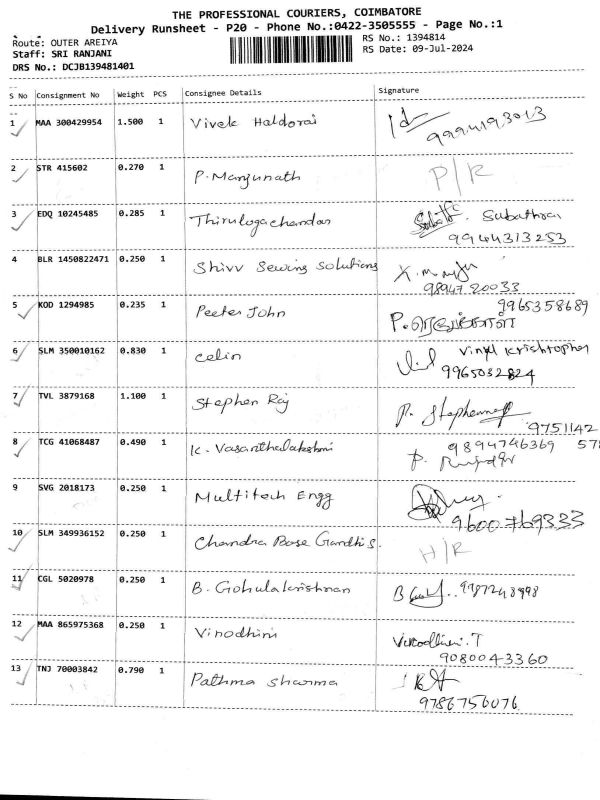 THE PROFESSIONAL COURIERS, COIMBATORE
Delivery Runsheet - P20 - Phone No.:0422-3505555 - Page No.:1
Route: OUTER AREIYA
RS No.: 1394814
Staff: SRI RANJANI
RS Date: 09-Jul-2024
DRS No.: DCJB139481401
S No Consignment No Weight PCS Consignee Details Signature
1 MAA 300429954 1.500 1 Vivek Haldorai
2 STR 415602 0.270 1 P. Manjunath P/R
3 EDQ 10245485 0.285 1 Thirulogachandar Subathra
9944313253
4 BLR 1450822471 0.250 1 Shivv Sewing Solutions
98947 20033
5 KOD 1294985 0.235 1 Peeter John 9965358689
6 SLM 350010162 0.830 1 Celin Vinyl Krishtopher
9965032824
7 TVL 3879168 1.100 1 Stephen Raj P. Stephen
9751142
578
8 TCG 41068487 0.490 1 K. Vasanthalakshmi 9894746369
9 SVG 2018173 0.250 1 Multitech Engg
9600769333
10 SLM 349936152 0.250 1 Chandra Bose Gandhi S. H/R
11 CGL 5020978 0.250 1 B. Gohulakrishnan
12 MAA 865975368 0.250 1 Vinodhini Vinodhini. T
9080043360
13 TNJ 70003842 0.790 1 Pathma Sharma
9786756076